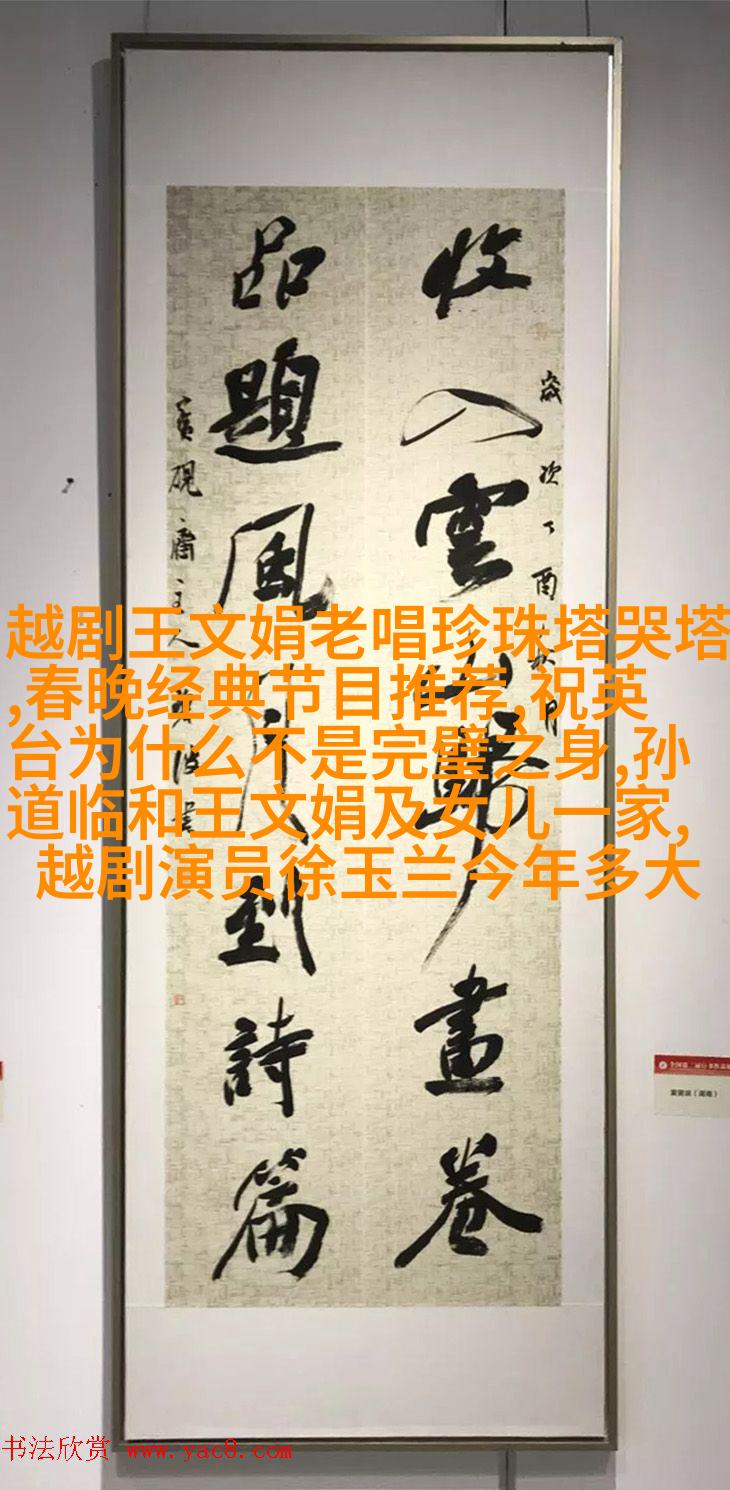 收入雲山歸畫卷
品題風月到詩篇
歲次丁酉
賓硯齋主人
越剧王文娟老唱珍珠塔哭塔
,春晚经典节目推荐,祝英
台为什么不是完璧之身,孙
道临和王文娟及女儿一家,
越剧演员徐玉兰今年多大
书法欣赏 www.yac8.com